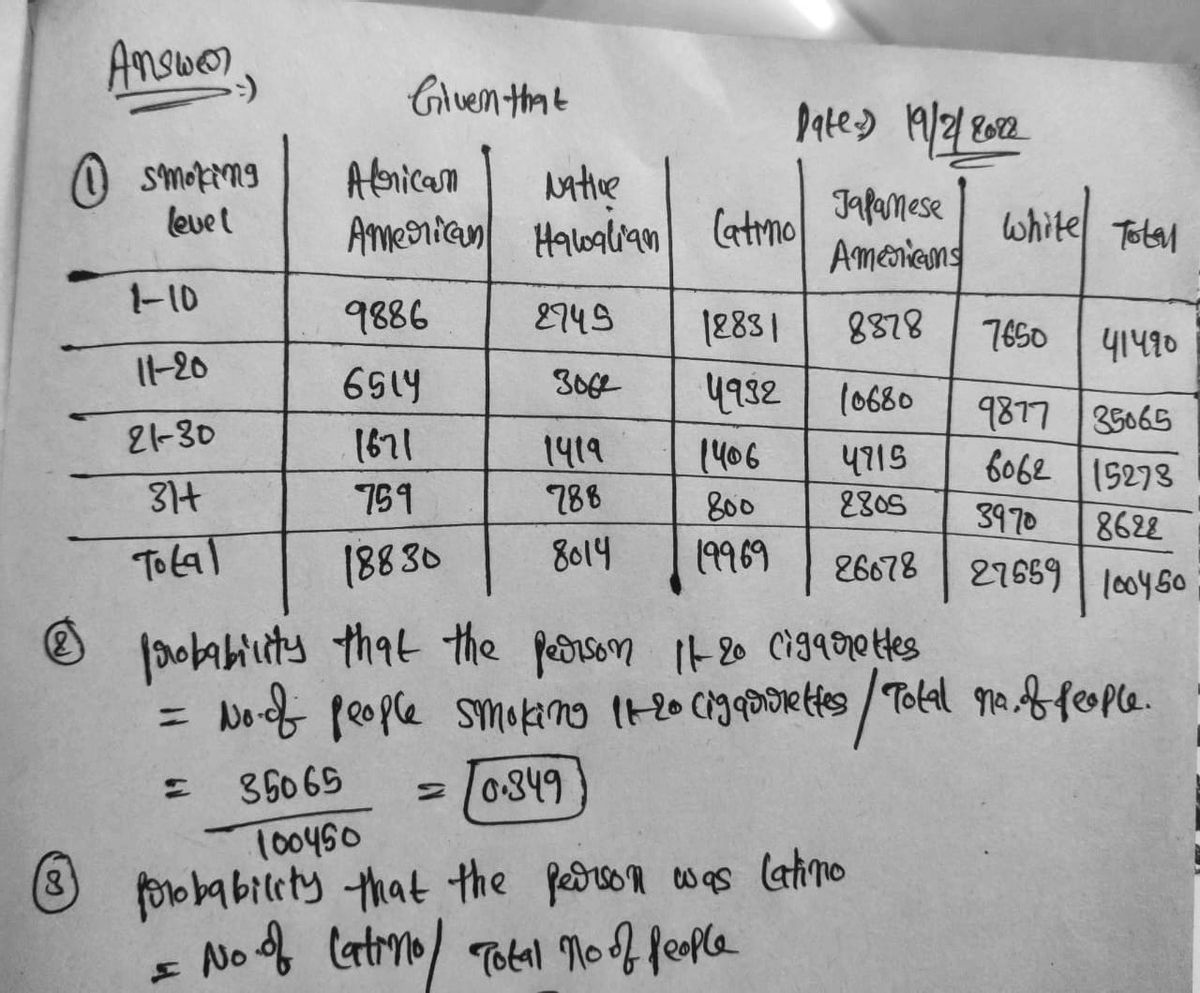 Answer :-)
Given that
Date => 19/2/2022
① smoking level | African American | Native Hawaiian | Latino | Japanese Americans | white | Total
1-10 | 9886 | 2745 | 12831 | 8378 | 7650 | 41490
11-20 | 6514 | 3062 | 4932 | 10680 | 9877 | 35065
21-30 | 1671 | 1419 | 1406 | 4715 | 6062 | 15273
31+ | 759 | 788 | 800 | 2305 | 3970 | 8622
Total | 18830 | 8014 | 19969 | 26078 | 27559 | 100450
② probability that the person 11-20 cigarettes
= No. of people smoking 11-20 cigarrettes / Total no. of people.
= 35065 / 100450 = 0.349
③ probability that the person was latino
= No of latino / Total no of people